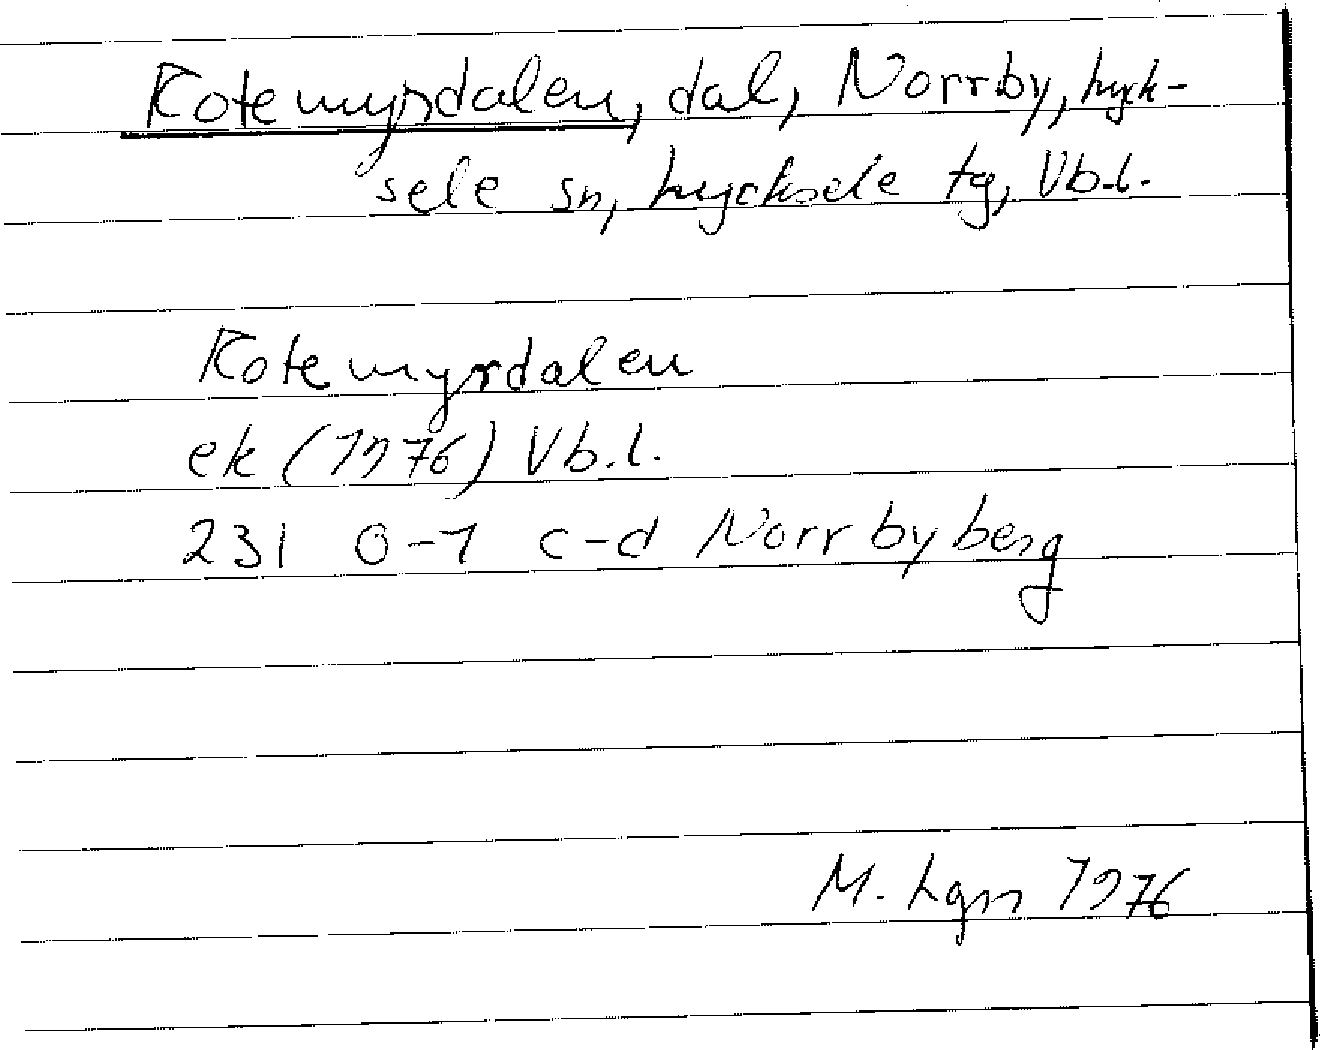 Kotemyrdalen, dal, Norrby, Lyck-
sele sn, Lycksele tg, Vb.l.
Kotemyrdalen
ek (1976) Vb.l.
23I 0-1 c-d Norrbyberg
M. Lgn 1976